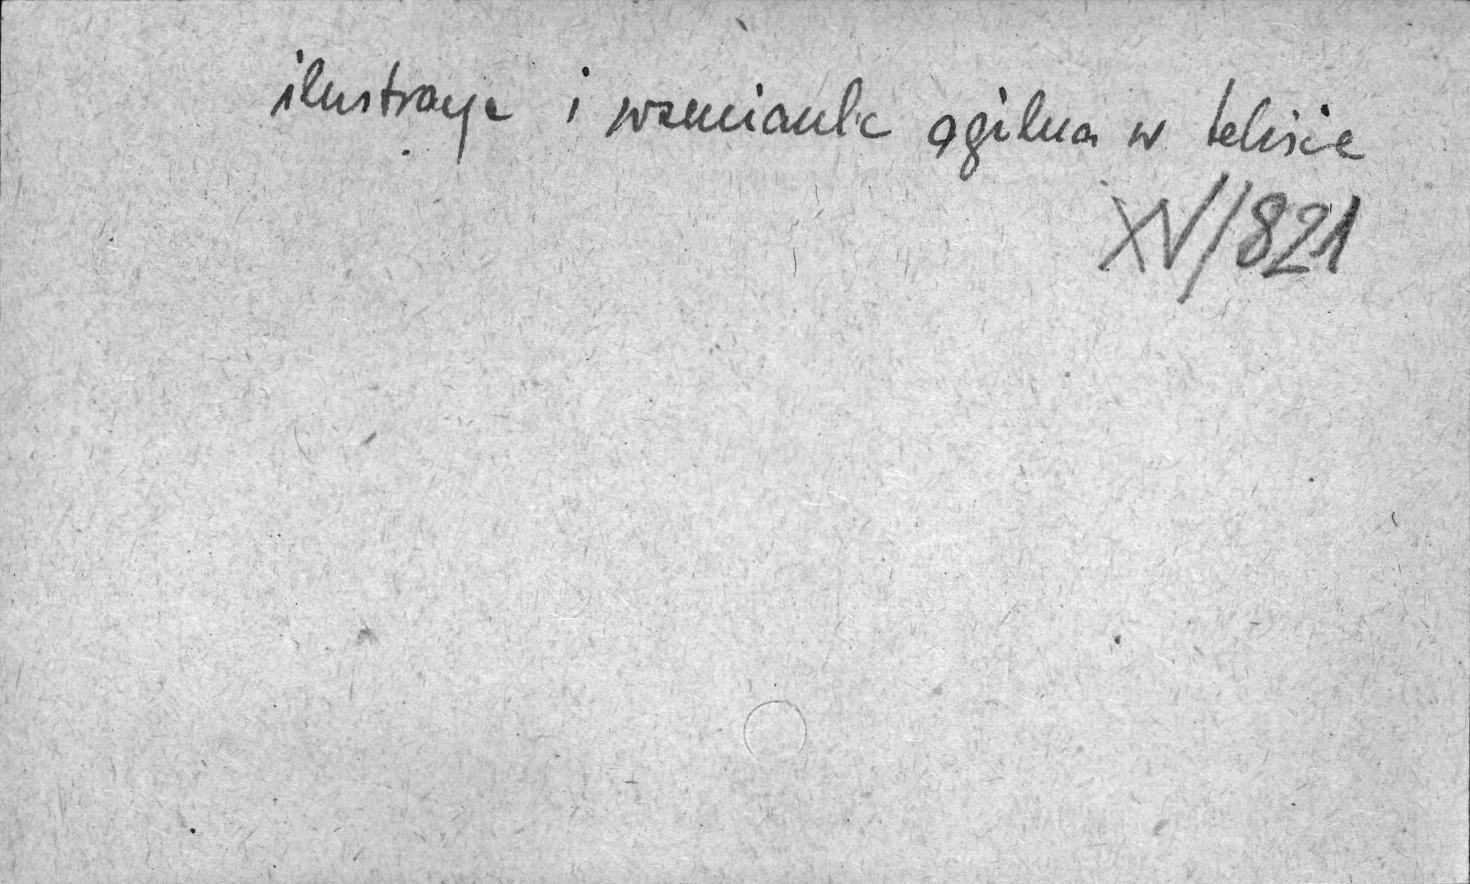 ilustracje i wzmianka ogólna w tekście
XV/821